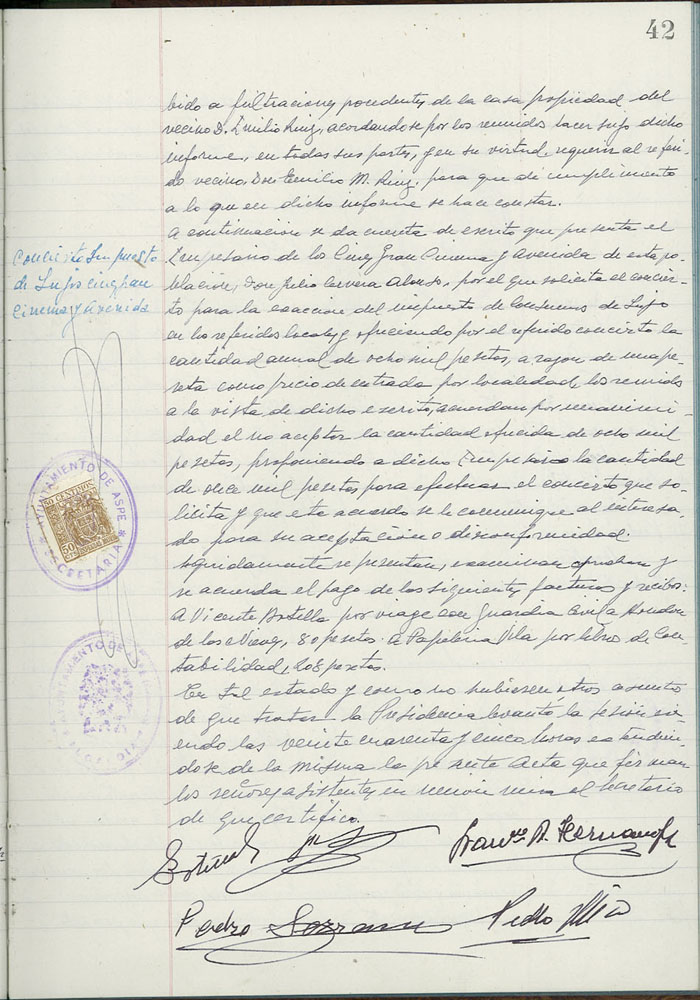 42
bido a filtraciones pendientes de la casa propiedad del
vecino D. Emilio Ruiz, acordandose por los reunidos hacer suyo dicho
informe, en todas sus partes, y en su virtud, requerir al referi-
do vecino Don Emilio M. Ruiz para que dé cumplimiento
a lo que en dicho informe se hace constar.
Concierto Impuesto
de Lujo cines gran
Cinema y Avenida
A continuacion se da cuenta de escrito que presenta el
Empresario de los Cines Gran Cinema y Avenida de esta po-
blacion, Don Julio Cervera Alonso, por el que solicita el concier-
to para la exaccion del impuesto de Consumos de Lujo
en los referidos locales y ofreciendo por el referido concierto la
cantidad anual de ocho mil pesetas, a razon de una pe-
seta como precio de entrada por localidad, los reunidos
a la vista de dicho escrito, acuerdan por unanimi-
dad el no aceptar la cantidad ofrecida de ocho mil
pesetas, proponiendo a dicho Empresario la cantidad
de doce mil pesetas para efectuar el concierto que so-
licita y que este acuerdo se le comunique al interesa-
do para su aceptacion o disconformidad.
Seguidamente se presentan, examinan aprueban y
se acuerda el pago de las siguientes facturas y recibos:
A Vicente Botella por viage con Guardia Civil a Hondon
de las Nieves, 80 pesetas. a Papeleria Vila por libro de Con-
tabilidad, 208 pesetas.
En tal estado y como no hubiesen otros asuntos
de que tratar la Presidencia levantó la sesión si-
endo las veinte cuarenta y cinco horas extendien-
dose de la misma la presente Acta que firman
los señores asistentes en union mia el Secretario
de que certifico.
Franco A. Hernandez
Pedro
Pedro
AYUNTAMIENTO DE ASPE
SECRETARIA
50 CENTIMOS
50
AYUNTAMIENTO DE